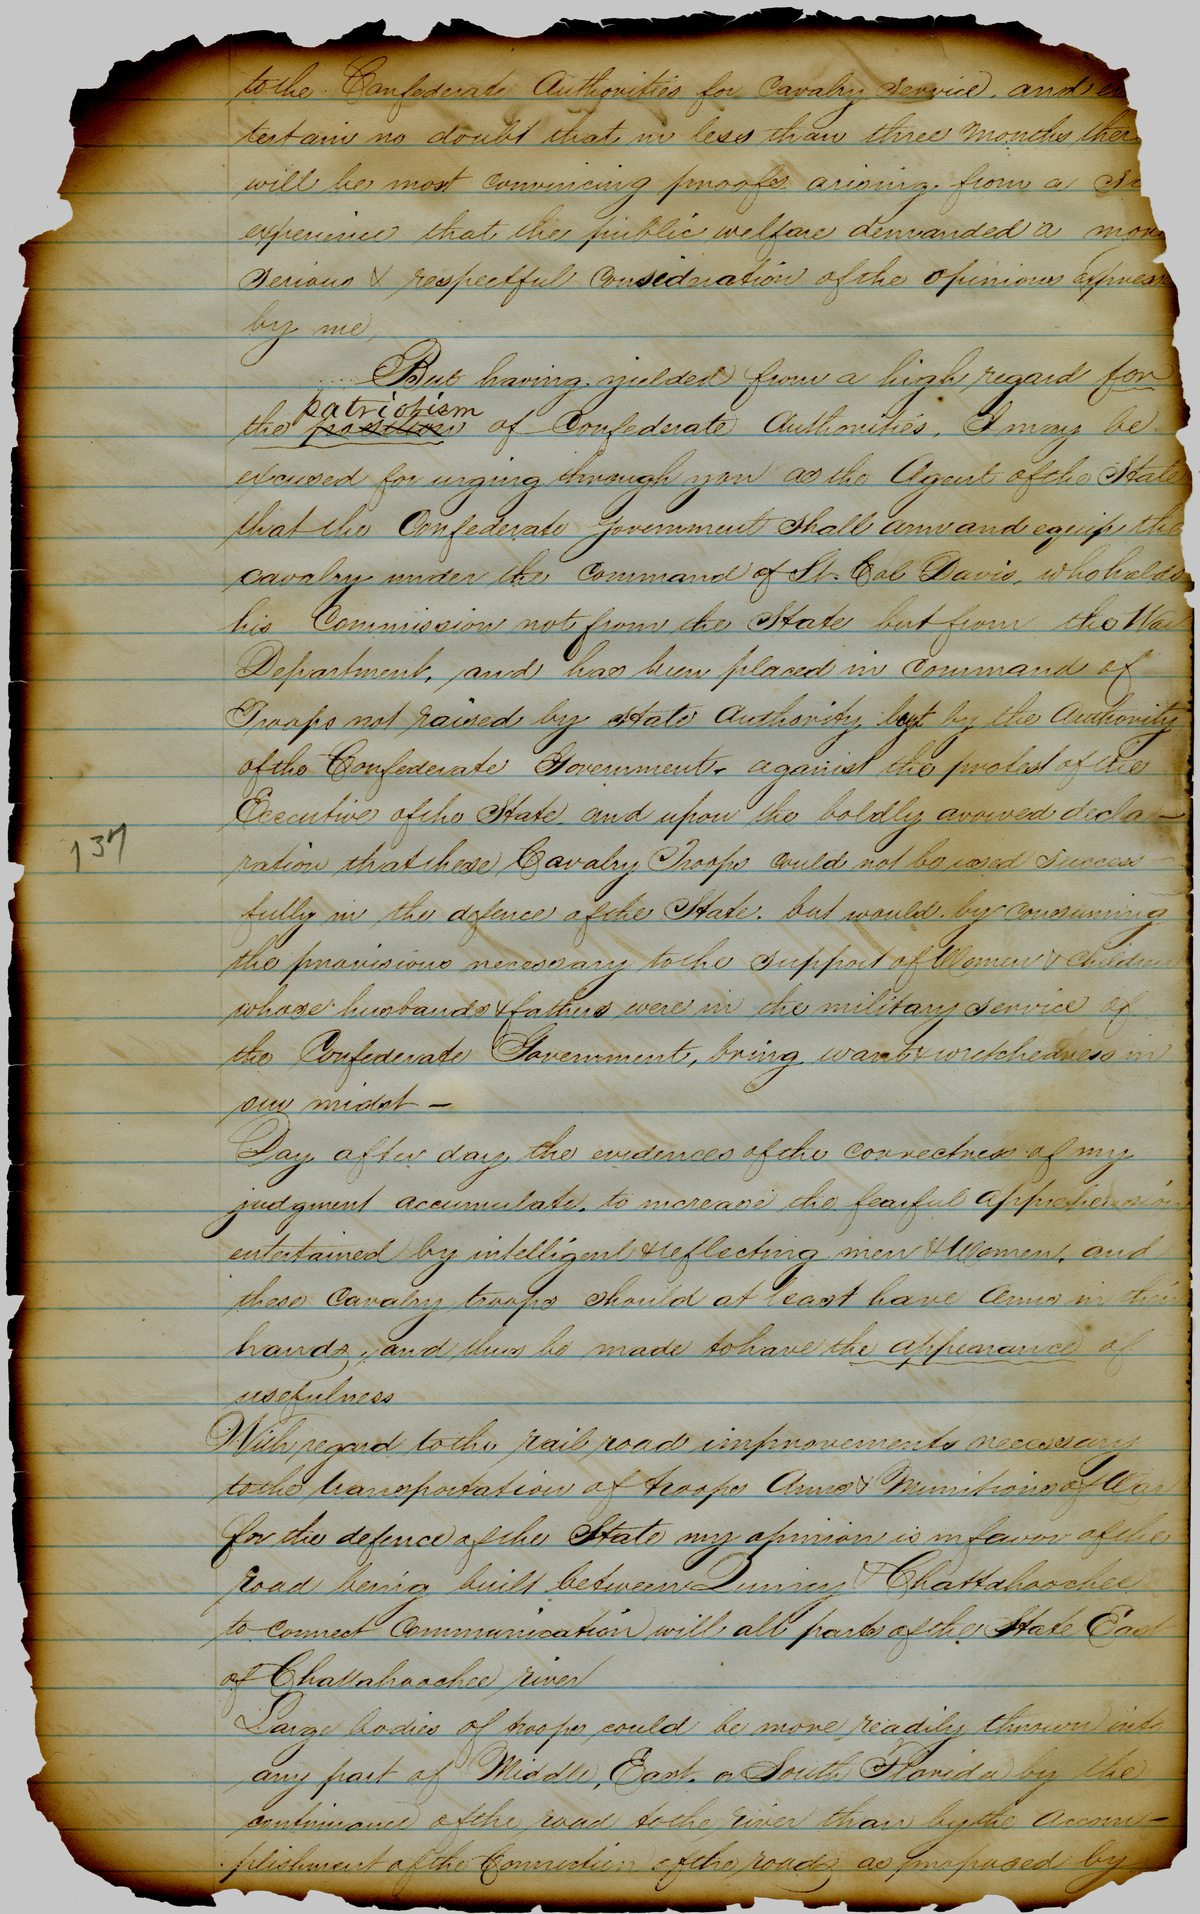 to the Confederate Authorities for Cavalry service, and en
tertain no doubt that in less than three months ther
will be most convincing proofs arising from a
experience that the public welfare demanded a more
serious & respectful consideration of the opinions express
by me,
But having yielded from a high regard for
patriotism
the position of Confederate Authorities, I may be
excused for urging through you as the Agent of the State
that the Confederate government shall arm and equip the
cavalry under the command of Lt. Col Davis, who holds
his Commission not from the State but from the War
Department, and has been placed in command of
Troops not raised by State Authority but by the Authority
of the Confederate Government, against the protest of the
Executive of the State and upon the boldly avowed decla-
137
ration that these Cavalry Troops could not be used success-
fully in the defence of the State, but would by consuming
the provisions necessary to the support of Women & children
whose husbands & fathers were in the military service of
the Confederate Government, bring want & wretchedness in
our midst –
Day after day the evidences of the correctness of my
judgment accumulate, to increase the fearful apprehension
entertained by intelligent & reflecting men & Women, and
these Cavalry troops should at least have Arms in their
hands, and thus be made to have the appearance of
usefulness
With regard to the rail road improvements necessary
to the transportation of troops Arms & Munitions of War
for the defence of the State my opinion is in favor of the
road being built between Quincy & Chattahoochee
to connect Communication with all parts of the State East
of Chattahoochee river
Large bodies of troops could be more readily thrown into
any part of Middle, East, or South Florida by the
continuance of the road to the river than by the accom-
plishment of the Connection of the roads as proposed by